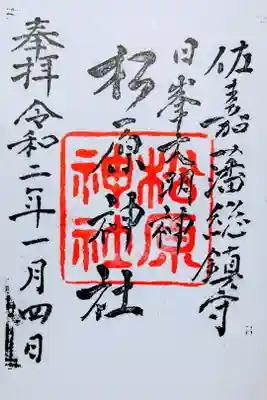 佐嘉藩総鎮守
日峯大明神
松原神社
奉拝令和二年一月四日
松原
神社